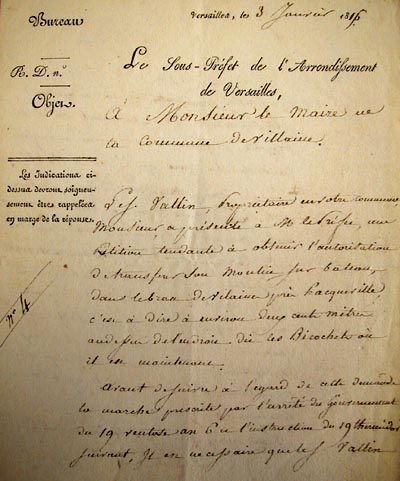 Bureau
Versailles, le 3 Janvier 1815
R. D. n.º
Objet
Le Sous-Préfet de l'Arrondissement
de Versailles,
A Monsieur le Maire de
la Commune de Villaine.
Les Indications ci-
dessus devront soigneu-
sement être rappelées
en marge de la réponse.
Le S. Vallin, Propriétaire en votre commune
Monsieur a présenté à M. le Préfet, une
Pétition tendante à obtenir l'autorisation
de transférer Son Moulin sur bateau,
dans le bras de Vilaine près
c'est à dire à environ deux cent mètres
au dessus de l'endroit dit les Bicochets où
il est maintenant.
Avant de suivre à l'égard de cette demande
la marche prescrite par l'arrêté du Gouvernement
du 19 ventose an 6 et l'instruction du 19 thermidor
suivant, Il est nécessaire que le S. Vallin